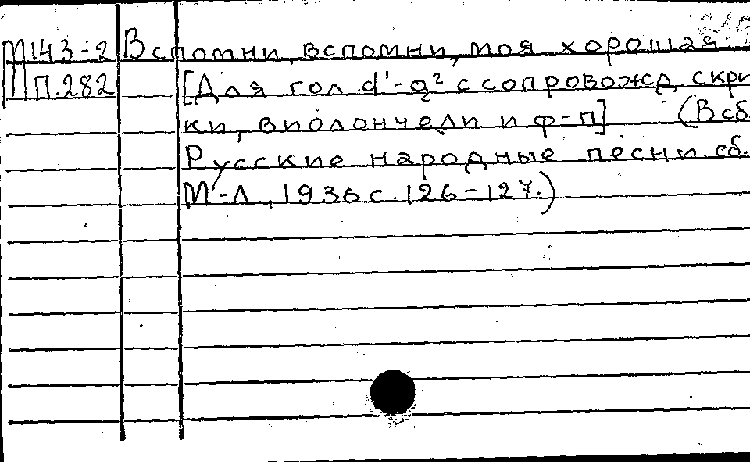 М143-2 Вспомни, вспомни, моя хорошая
П.282 [Для гол. d'-g² с сопровожд. скри
ки, виолончели и ф-п] (В сб.
Русские народные песни сб.
М-Л, 1936 с. 126-127.)